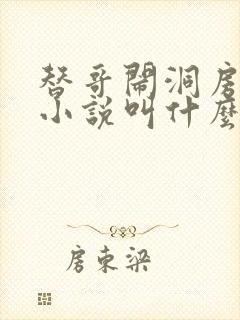 替哥鬧洞房
小說叫什麼
房東梁